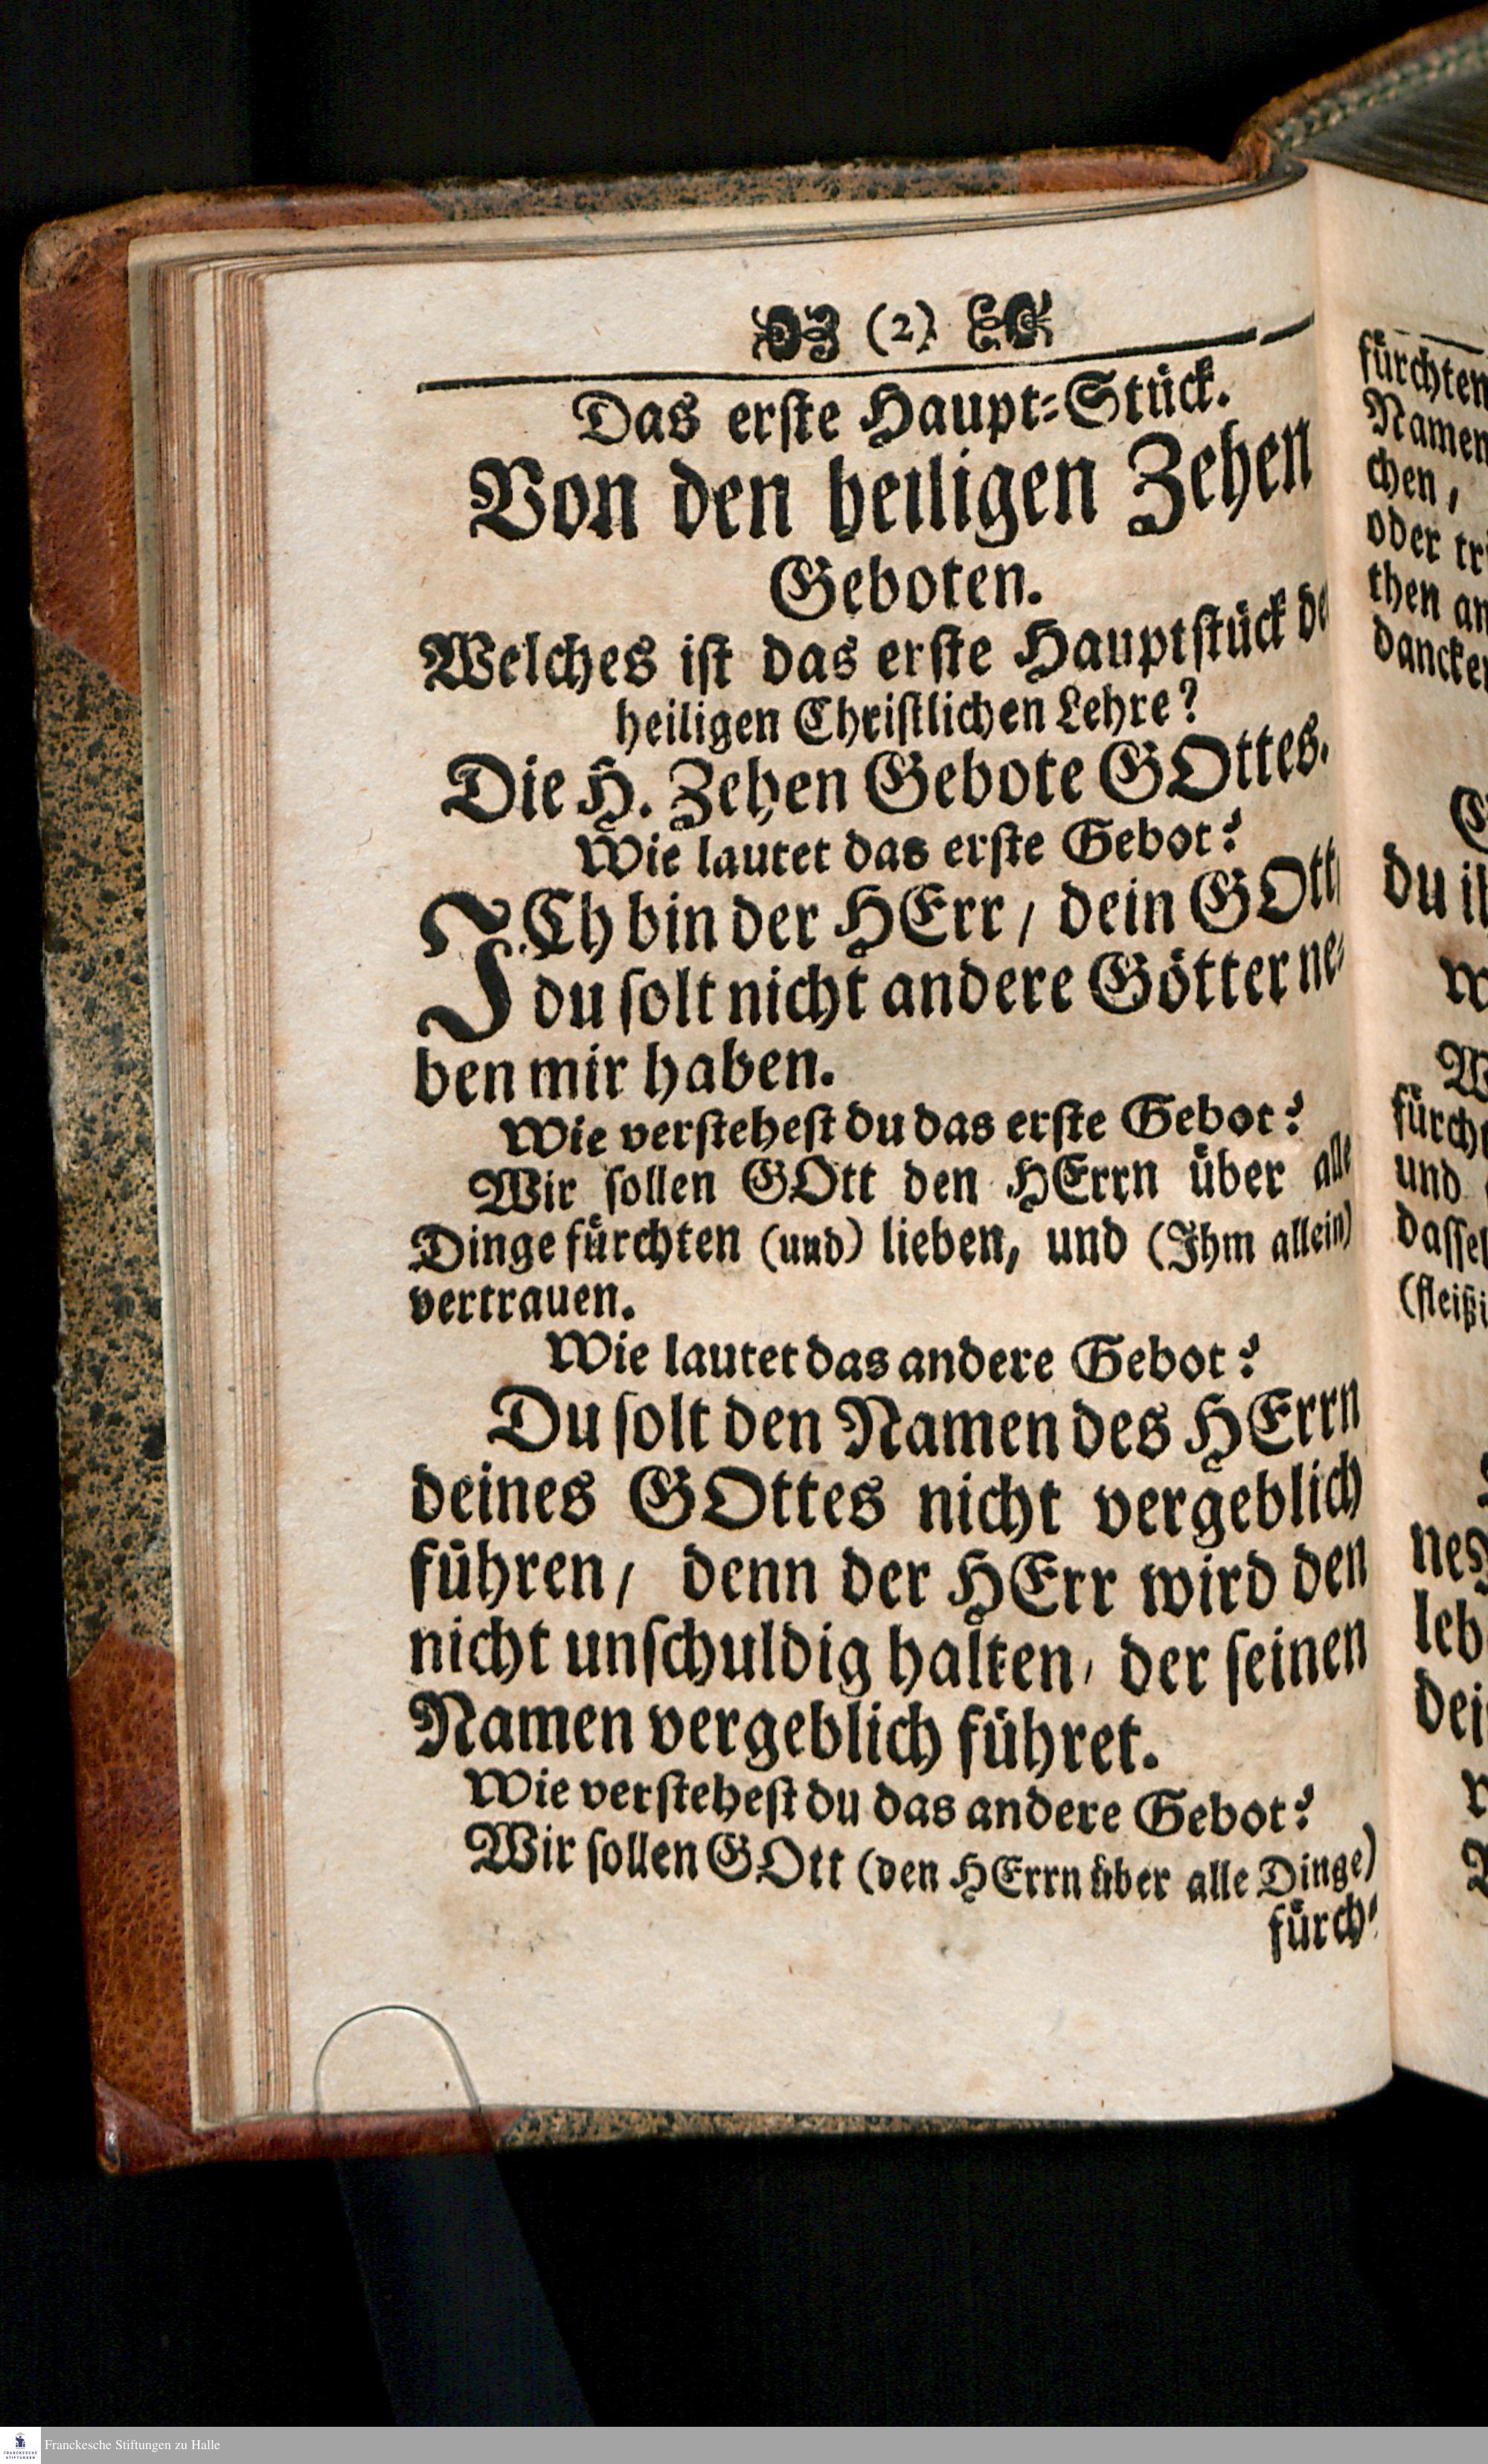 (2)
Das erste Haupt-Stück.
Von den heiligen Zehen
Geboten.
Welches ist das erste Hauptstück
heiligen Christlichen Lehre?
Die H. Zehen Gebote GOttes.
Wie lautet das erste Gebot?
ICh bin der HErr / dein GOtt
du solt nicht andere Götter ne-
ben mir haben.
Wie verstehest du das erste Gebot?
Wir sollen GOtt den HErrn über alle
Dinge fürchten (und) lieben, und (Ihm allein)
vertrauen.
Wie lautet das andere Gebot?
Du solt den Namen des HErrn
deines GOttes nicht vergeblich
führen / denn der HErr wird den
nicht unschuldig halten, der seinen
Namen vergeblich führet.
Wie verstehest du das andere Gebot?
Wir sollen GOtt (den HErrn über alle Dinge)
fürch-
fürchten
Namen
chen,
oder
then
du
und
Franckesche Stiftungen zu Halle